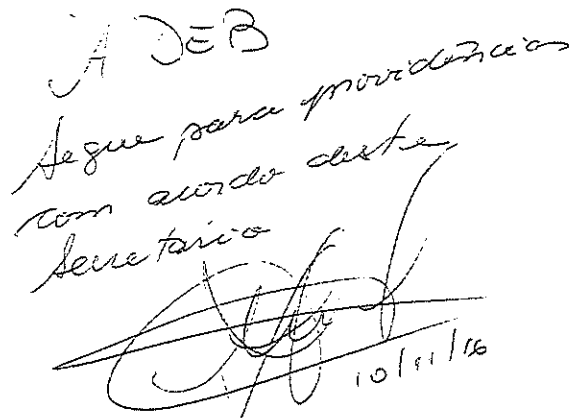 À DEB
Segue para providências
com acordo deste
Secretário
10/11/16